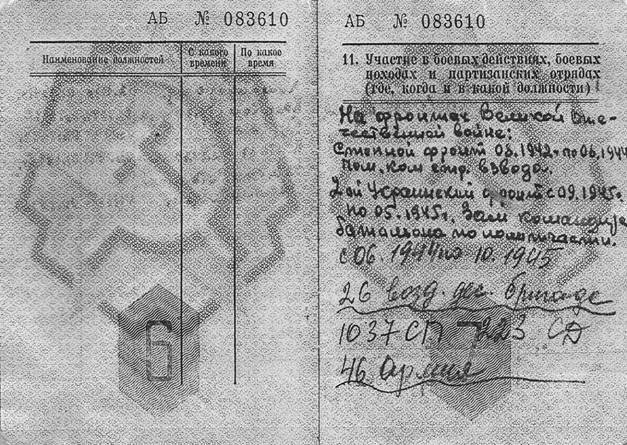 АБ № 083610
Наименование должностей
С какого времени
По какое время
6
АБ № 083610
11. Участие в боевых действиях, боевых
походах и партизанских отрядах
(где, когда и в какой должности)
На фронтах Великой Оте-
чественной войне:
Степной фронт 03.1942 по 06.1944
Пом. ком стр. взвода.
2ой Украинский фронт с 09.1945г.
по 05.1945г. Зам командира
батальона по политчасти.
с 06.1944 по 10.1945
26 возд. дес. бригаде
1037 СП 223 СД
46 Армия
7